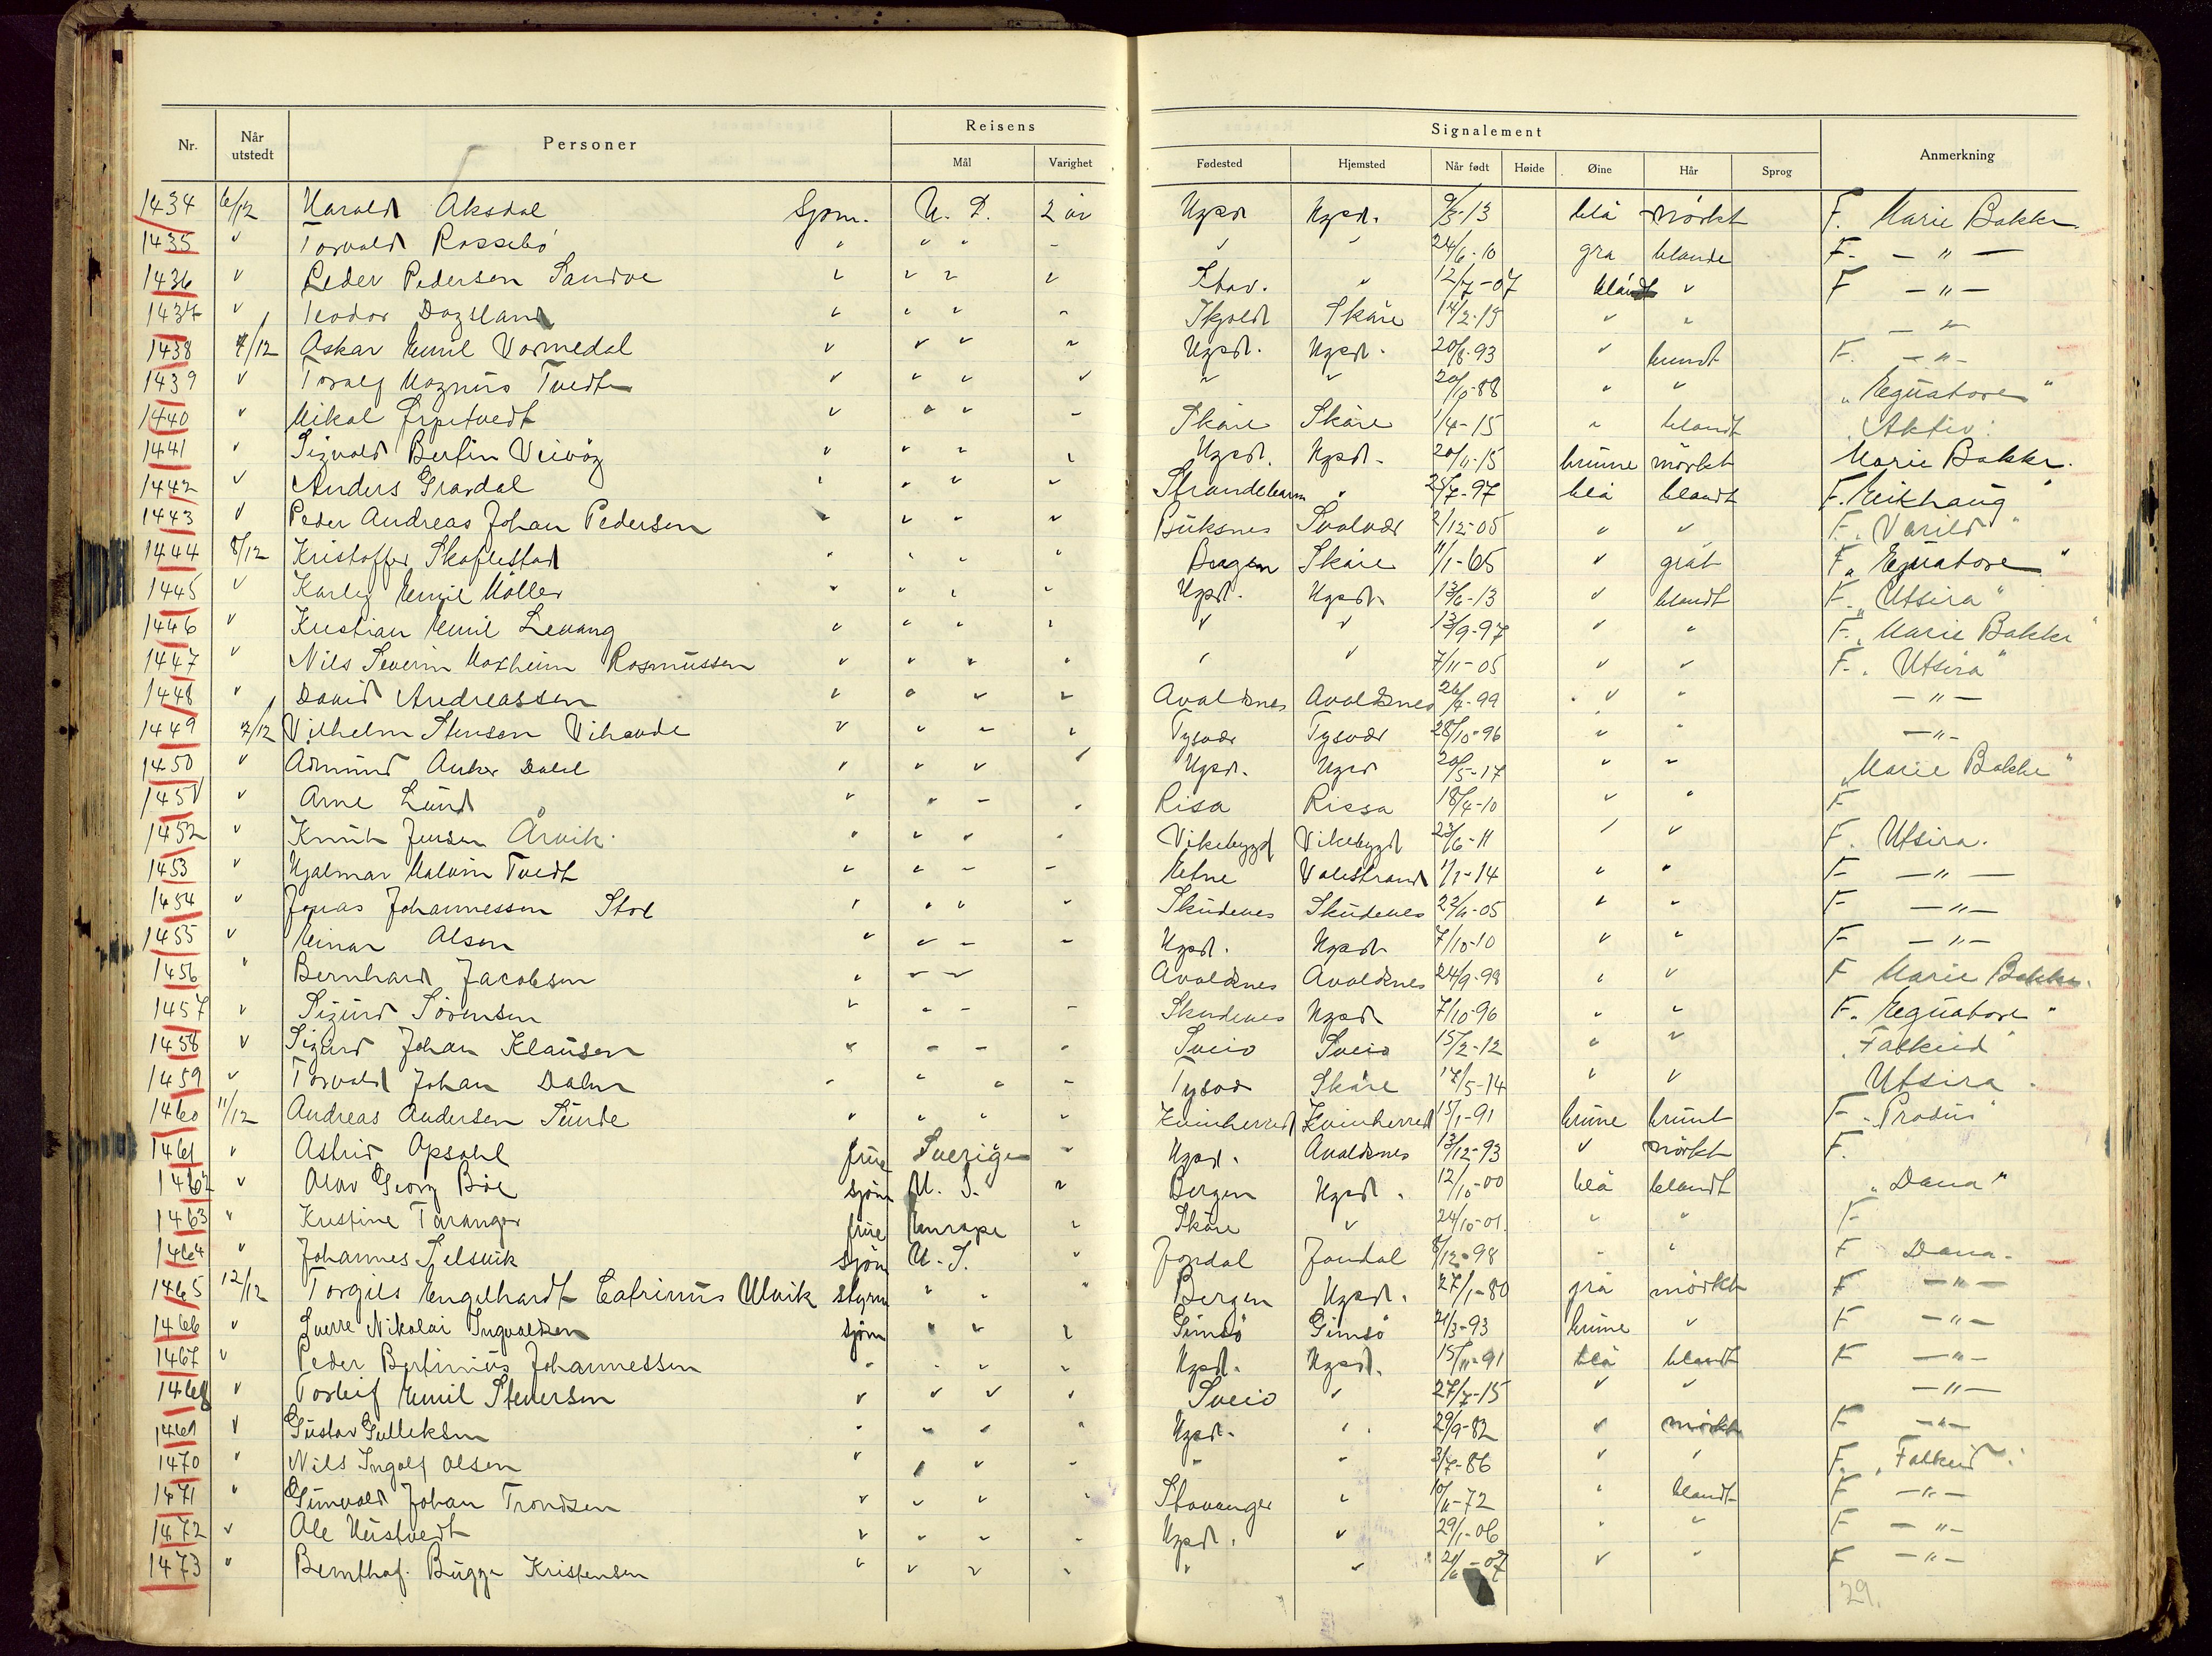 Nr. Når utstedt Personer Reisens Mål Varighet Signalement Fødested Hjemsted Når født Høide Øine Hår Sprog Anmerkning
1434 6/12 Harald Aksdal Sjøm. U. S. 2 år Hgsd Hgsd. 9/3-13 blå mörkt F. Marie Bakke
1435 " Torvald Rossebö " " " - " " 24/6-10 grå blonde F. - " -
1436 " Peder Pedersen Sandve " " " " Stav. " 12/7-07 blå " F - " -
1437 " Teodor Dagsland " " " " Skjold Skåre 14/2-15 " " - " -
1438 7/12 Oskar Emil Vormedal " " " " Hgsd. Hgsd. 20/8-93 " brunt F. - " -
1439 " Toralf Magnus Tvedt " " " " " " 20/10-88 " " "Equatore"
1440 " Mikal " " " - Skåre Skåre 1/4-15 " blondt "Aktiv"
1441 " Sigvald Bertin " " " " Hgsd. Hgsd. 20/11-15 brune mörkt Marie Bakke.
1442 " Anders Gravdal " " " " Strandebarm " 25/7-97 blå blondt F. Eikhaug"
1443 " Peder Andreas Johan Pedersen " " " " Buksnes Svolvær 2/12-05 " " F. Varild"
1444 8/12 Kristoffer Skoflestad " " " " Skåre 11/1-65 " grått F "Equatore"
1445 " Karley Emil Möller " " " " Hgsd. Hgsd. 13/6-13 " blondt F. "Utsira"
1446 " Kristian Emil Levang " " " " " " 13/9-97 " " F. "Marie Bakke"
1447 " Nils Severin Moxheim Rasmussen " " " " " " 7/11-05 " " F. "Utsira"
1448 " David Andreassen " " " " Avaldsnes Avaldsnes 26/4-99 " " - " -
1449 7/12 Vilhelm Stensen Vihovde " " " " Tysvær Tysvær 28/10-96 " " - " -
1450 " Admund Anker Dahl " " " " Hgsd. Hgsd 20/5-17 " " "Marie Bakke"
1451 " Arne Lund " " - " Risa Rissa 18/4-10 " " F
1452 " Knut Jensen Årvik. " " " " Vikebygd Vikebygd 23/6-11 " " F. Utsira.
1453 " Hjalmar Malvin Tvedt " " - - Etne Valestrand 1/1-14 " " F - " -
1454 " Jonas Johannessen Stol " " " " Skudenes Skudenes 22/11-05 " " F - " -
1455 " Einar Olsen " " - - Hgsd. Hgsd. 7/10-10 " " F - " -
1456 " Bernhard Jacobsen " - - Avaldsnes Avaldsnes 24/9-98 " " F Marie Bakke.
1457 " Sigurd Sörensen " " - - Skudenes Hgsd 7/10-96 " " F. Equatore"
1458 " Sigurd Johan Klausen " - - " Sveio Sveio 15/2-12 " " "Falkeid"
1459 " Torvald Johan Dahn - " " - Tysvær Skåre 17/5-14 " " Utsira.
1460 11/12 Andreas Andersen Sunde " " " " Kvinherred Kvinherred 15/1-91 brune brunt F. Prodüs"
1461 " Astrid Opsahl frue Sverige " Hgsd. Avaldsnes 13/12-93 " mörkt F.
1462 " Olav Georg Böe sjöm U. S. " Bergen Hgsd. 12/10-00 blå blondt "Dana"
1463 " Kristine Taranger frue Europa " Skåre " 24/10-01. " " F
1464 " Johannes Selsvik sjöm U. S. " Jondal Jondal 8/12-98 - " F Dana.
1465 12/12 Torgils Engelhardt Catrinus Ulvik styrm " " " Bergen Hgsd. 27/1-80 grå mörkt F - " -
1466 " Sverre Nikolai Ingvaldsen sjöm " " " Gimsö Gimsö 21/3-93 brune " F - " -
1467 " Peder Bertinius Johannessen " " " " Hgsd. Hgsd. 15/11-91 blå blondt F - " -
1468 " Torleif Emil Stenersen " " " " Sveio " 27/7-15 " " - " -
1469 " Gustav Gulleksen " - " " Hgsd. " 29/9-82 " mörkt F - " -
1470 " Nils Ingolf Olsen " " " - " " 3/7-86 " " F. "Falkeid".
1471 " Gunvald Johan Trondsen " " " " Stavanger " 10/11-72 " blondt F - " -
1472 " Ole Hustvedt " " - - Hgsd. " 29/1-06 " " F - " -
1473 " Bernthof. Bugge Kristensen " " " " " " 21/6-07 " " F - " -
29.